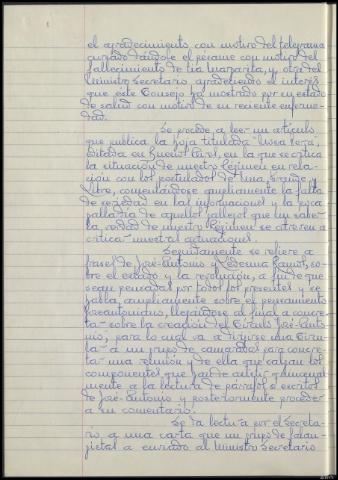 el agradecimiento con motivo del telegrama
cursado dándole el pésame con motivo del
fallecimiento de tía Margarita, y otra del
Ministro Secretario agradeciendo el interés
que este Consejo ha mostrado por su estado
de salud con motivo de su reciente enferme-
dad.
Se procede a leer un artículo
que publica la hoja titulada
editada en Buenos Aires, en la que se critica
la situación de nuestro Régimen en rela-
ción con los postulados de Una, Grande y
Libre, comentándose ampliamente la falta
de seriedad en las informaciones y la poca
gallardía de aquellos que sin saber
la verdad de nuestro Régimen se atreven a
criticar nuestras actuaciones.
Seguidamente se refiere a
frases de José-Antonio y Ledesma Ramos, so-
bre el estado y la revolución, a fin de que
sean pensadas por todos los presentes y se
habla ampliamente sobre el pensamiento
joseantoniano, llegándose al final a concre-
tar sobre la creación del Círculo José-Anto-
nio, para lo cual va a dirigirse una Circu-
lar a un grupo de camaradas para concre-
tar una reunión y de ella que salgan los
componentes que han de asistir quincenal-
mente a la lectura de párrafos o escritos
de José-Antonio y posteriormente proceder
a su comentario.
Se da lectura por el Secreta-
rio, a una carta que un grupo de falan-
gistas a enviado al Ministro Secretario